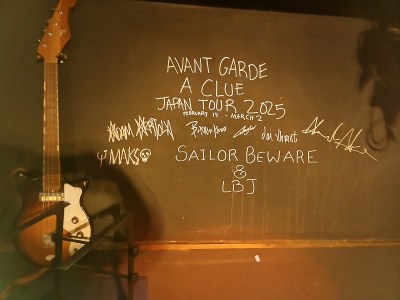 AVANT GARDE
A CLUE
JAPAN TOUR 2025
FEBRUARY 14 - MARCH 2
MAKS
SAILOR BEWARE
&
LBJ